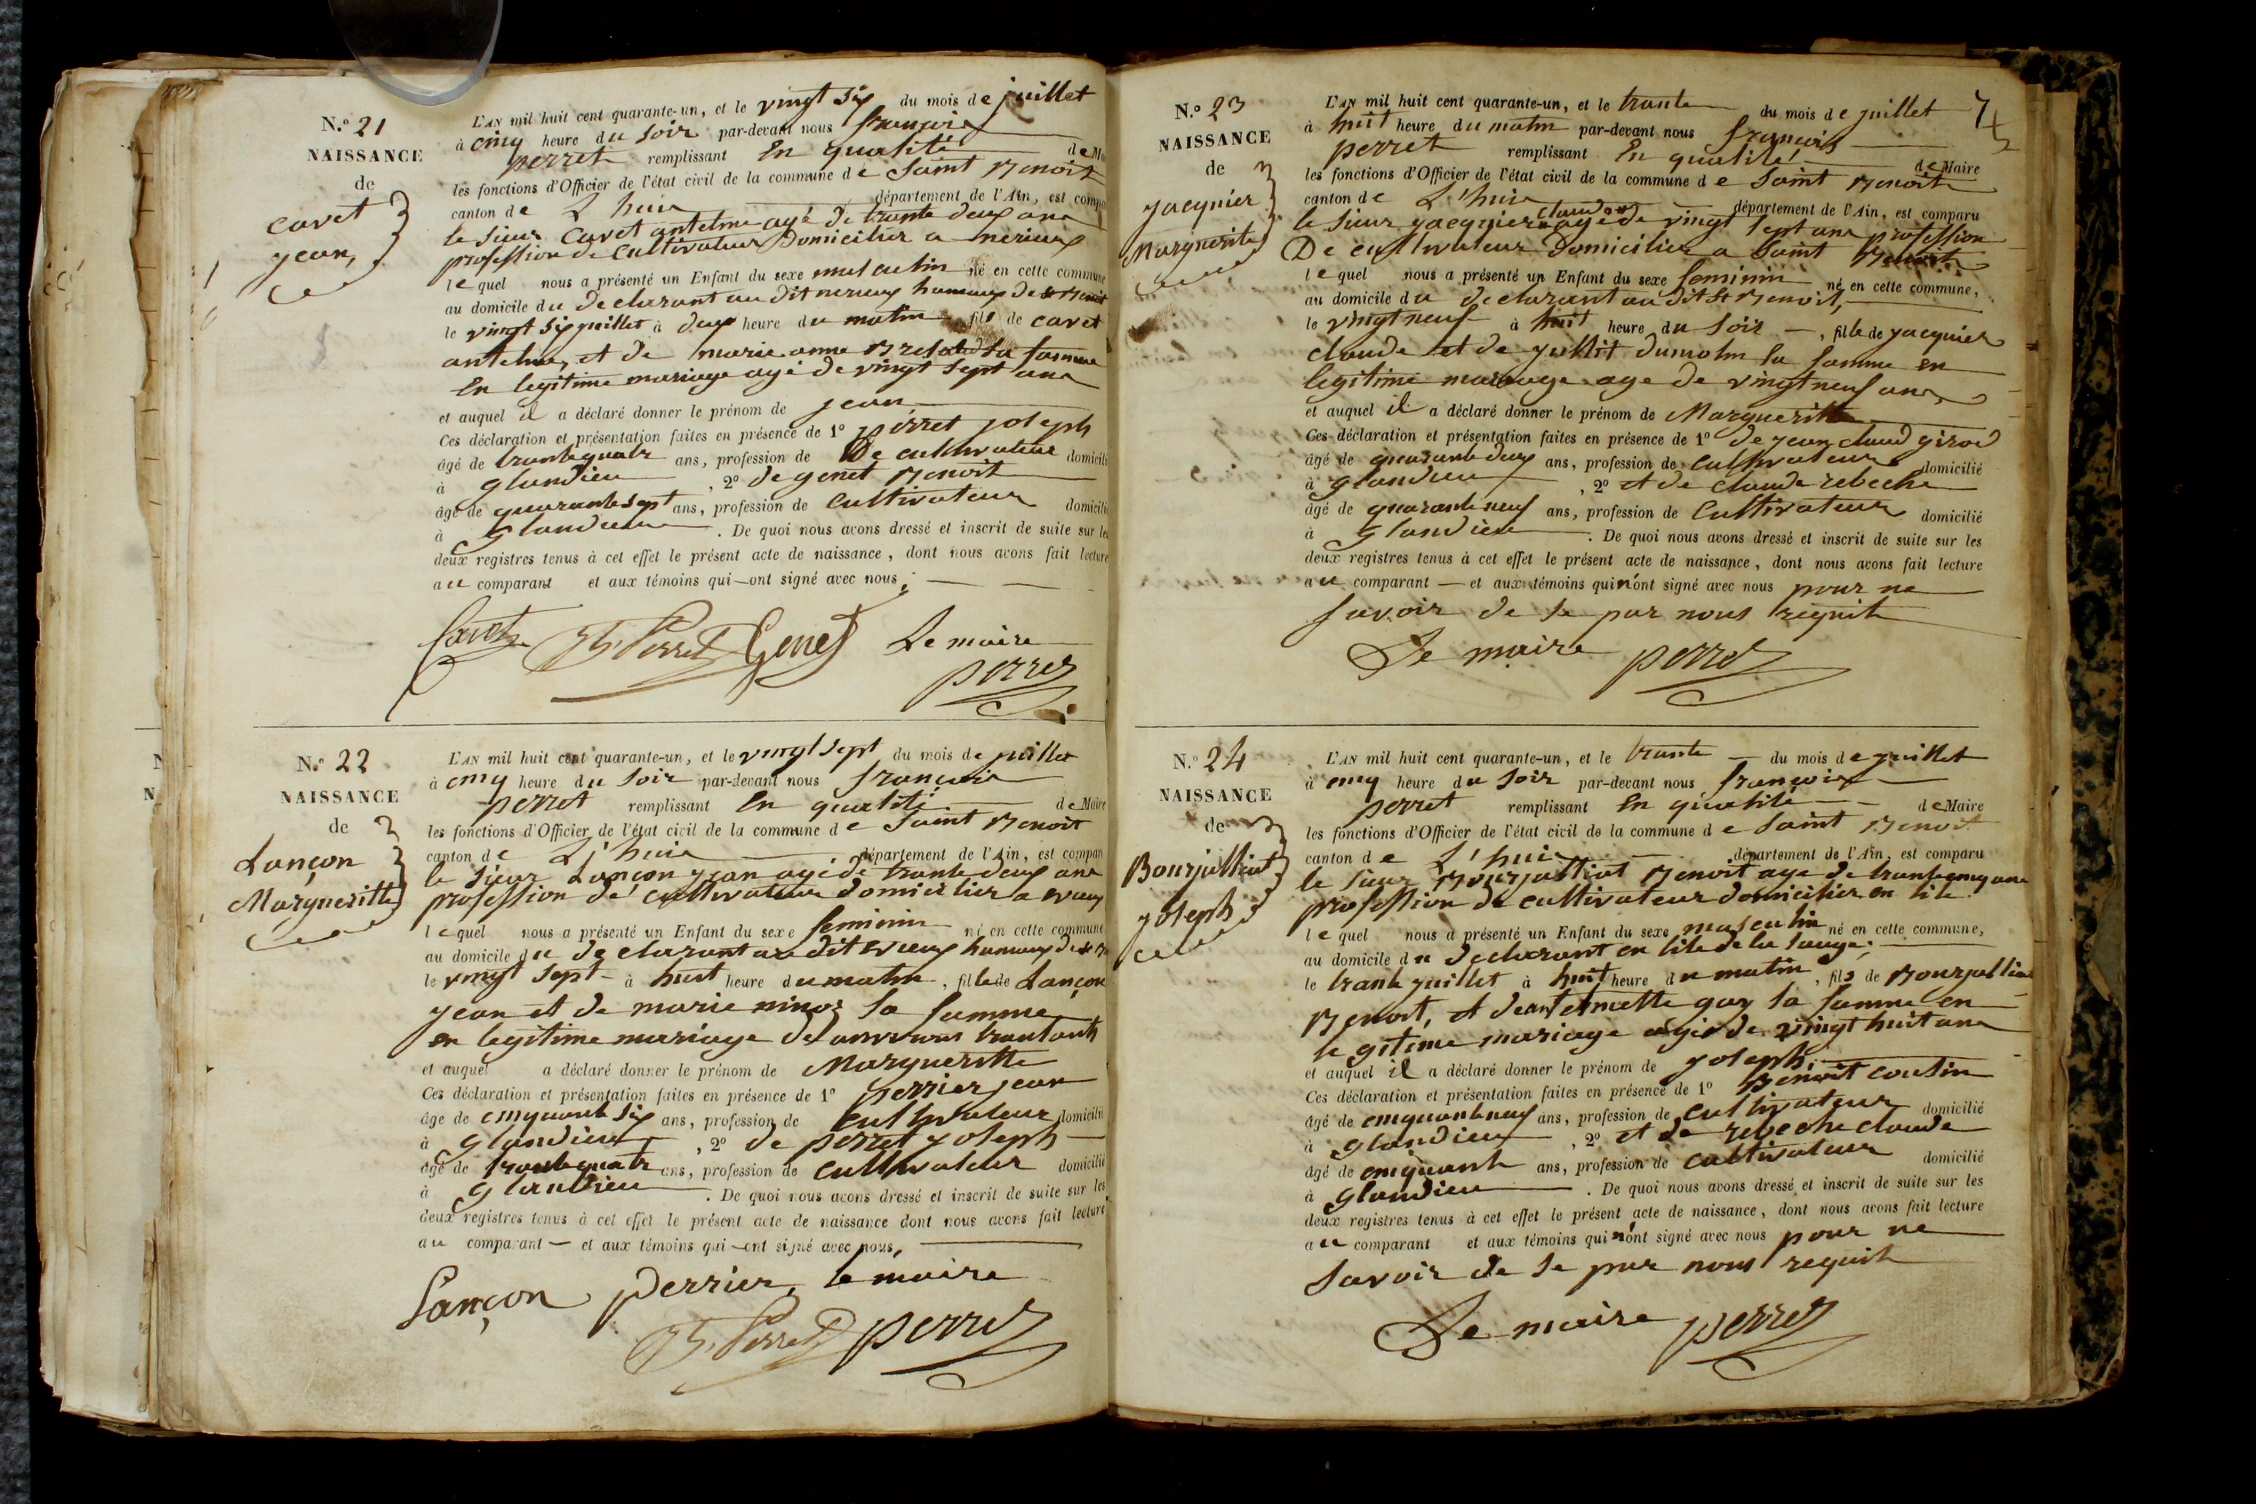 N.º 21
NAISSANCE
de
Cavet
jean,
L'AN mil huit cent quarante-un, et le vingt six du mois de juillet
à cinq heure du soir par-devant nous françois
perret remplissant En qualité de Ma
les fonctions d'Officier de l'état civil de la commune de Saint Benoit
canton de L'huis département de l'Ain, est compa
le sieur Cavet antelme agé de trante deux ans
profession de Cultivateur Domicilier a
lequel nous a présenté un Enfant du sexe masculin né en cette commune
au domicile du declarant au dit hameux de st Benoit
le vingt six juillet à deux heure du matin fils de cavet
antelme, et de marie anne sa famme
En legitime mariage agé de vingt sept ans
et auquel il a déclaré donner le prénom de jean
Ces déclaration et présentation faites en présence de 1º perret joseph
âgé de trantequatr ans, profession de De cultivateur domicilié
à glandieu , 2º de genet Benoit
âgé de quarantesept ans, profession de Cultivateur domicilié
à Glandieu . De quoi nous avons dressé et inscrit de suite sur les
deux registres tenus à cet effet le présent acte de naissance, dont nous avons fait lecture
au comparant et aux témoins qui ont signé avec nous
Cavet Jh Perret Genet Le maire
perret
N.º 22
NAISSANCE
de
Lançon
Margueritte
L'AN mil huit cent quarante-un, et le vingt sept du mois de juillet
à cinq heure du soir par-devant nous françois
perret remplissant En qualité de Maire
les fonctions d'Officier de l'état civil de la commune de Saint Benoit
canton de L'huis département de l'Ain, est compar
le sieur Lançon jean agé de trante deux ans
profession de cultivateur domicilier a evieux
lequel nous a présenté un Enfant du sexe feminin né en cette commune
au domicile du declarant au dit evieux hameux de st B
le vingt sept à huit heure du matin, fille de Lançon
jean et de marie sa famme
en legitime mariage
et auquel a déclaré donner le prénom de Margueritte
Ces déclaration et présentation faites en présence de 1º perrier jean
âge de cinquante six ans, profession de cultivateur domicilié
à glandieu , 2º de perret joseph
âgé de trantequatr ans, profession de cultivateur domicilié
à glandieu . De quoi nous avons dressé et inscrit de suite sur les
deux registres tenus à cet effet le présent acte de naissance dont nous avons fait lecture
au comparant et aux témoins qui ont signé avec nous,
Lançon perrier, le maire
Jh Perret perret
7
N.º 23
NAISSANCE
de
jacquier
Margueritte
L'AN mil huit cent quarante-un, et le trante du mois de juillet
à huit heure du matin par-devant nous françois
perret remplissant En qualité de Maire
les fonctions d'Officier de l'état civil de la commune de Saint Benoit
canton de L'huis département de l'Ain, est comparu
claude
le sieur jacquier agé de vingt sept ans profession
De cultivateur Domicilier a Saint Benoit
lequel nous a présenté un Enfant du sexe feminin né en cette commune,
au domicile du declarant au dit st Benoit,
le vingt neuf à huit heure du soir , fille de jacquier
claude et de dumolin sa famme en
legitime mariage age de vingt neuf ans,
et auquel il a déclaré donner le prénom de Margueritte
Ces déclaration et présentation faites en présence de 1º de jean claud girod
âgé de quarante deux ans, profession de cultivateur domicilié
à glandieu , 2º et de claude rebeche
âgé de quarante neuf ans, profession de Cultivateur domicilié
à Glandieu . De quoi nous avons dressé et inscrit de suite sur les
deux registres tenus à cet effet le présent acte de naissance, dont nous avons fait lecture
au comparant et aux témoins qui n'ont signé avec nous pour ne
savoir de se par nous requit
Le maire perret
N.º 24
NAISSANCE
de
Bourjalliat
joseph
L'AN mil huit cent quarante-un, et le trante du mois de juillet
à cinq heure du soir par-devant nous françois
perret remplissant En qualité de Maire
les fonctions d'Officier de l'état civil de la commune de Saint Benoit
canton de L'huis département de l'Ain, est comparu
le sieur Bourjalliat Benoit age de trante cinq ans
profession de cultivateur domicilier en lile
lequel nous a présenté un Enfant du sexe masculin né en cette commune,
au domicile du declarant en lile de la sauge,
le trante juillet à huit heure du matin, fils de Bourjalliat
Benoit, et guy sa famme en
legitime mariage agée de vingt huit ans
et auquel il a déclaré donner le prénom de joseph,
Ces déclaration et présentation faites en présence de 1º Benoit cousin
âgé de cinquante neuf ans, profession de cultivateur domicilié
à glandieu , 2º et de rebeche claude
âgé de cinquante ans, profession de cultivateur domicilié
à glandieu . De quoi nous avons dressé et inscrit de suite sur les
deux registres tenus à cet effet le présent acte de naissance, dont nous avons fait lecture
au comparant et aux témoins qui n'ont signé avec nous pour ne
savoir de se par nous requit
Le maire perret